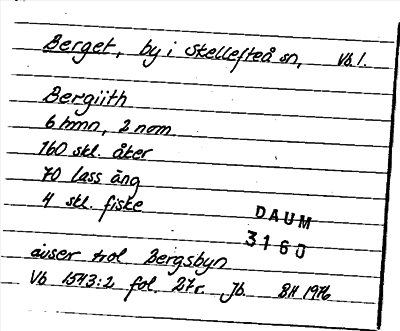 Berget, by i Skellefteå sn, Vb.l.
Bergiith
6 hmn, 2 nom
160 skl. åker
70 lass äng
4 skl. fiske
DAUM
3160
avser trol Bergsbyn
Vb 1543:2 fol. 27r. Jb. BH 1976